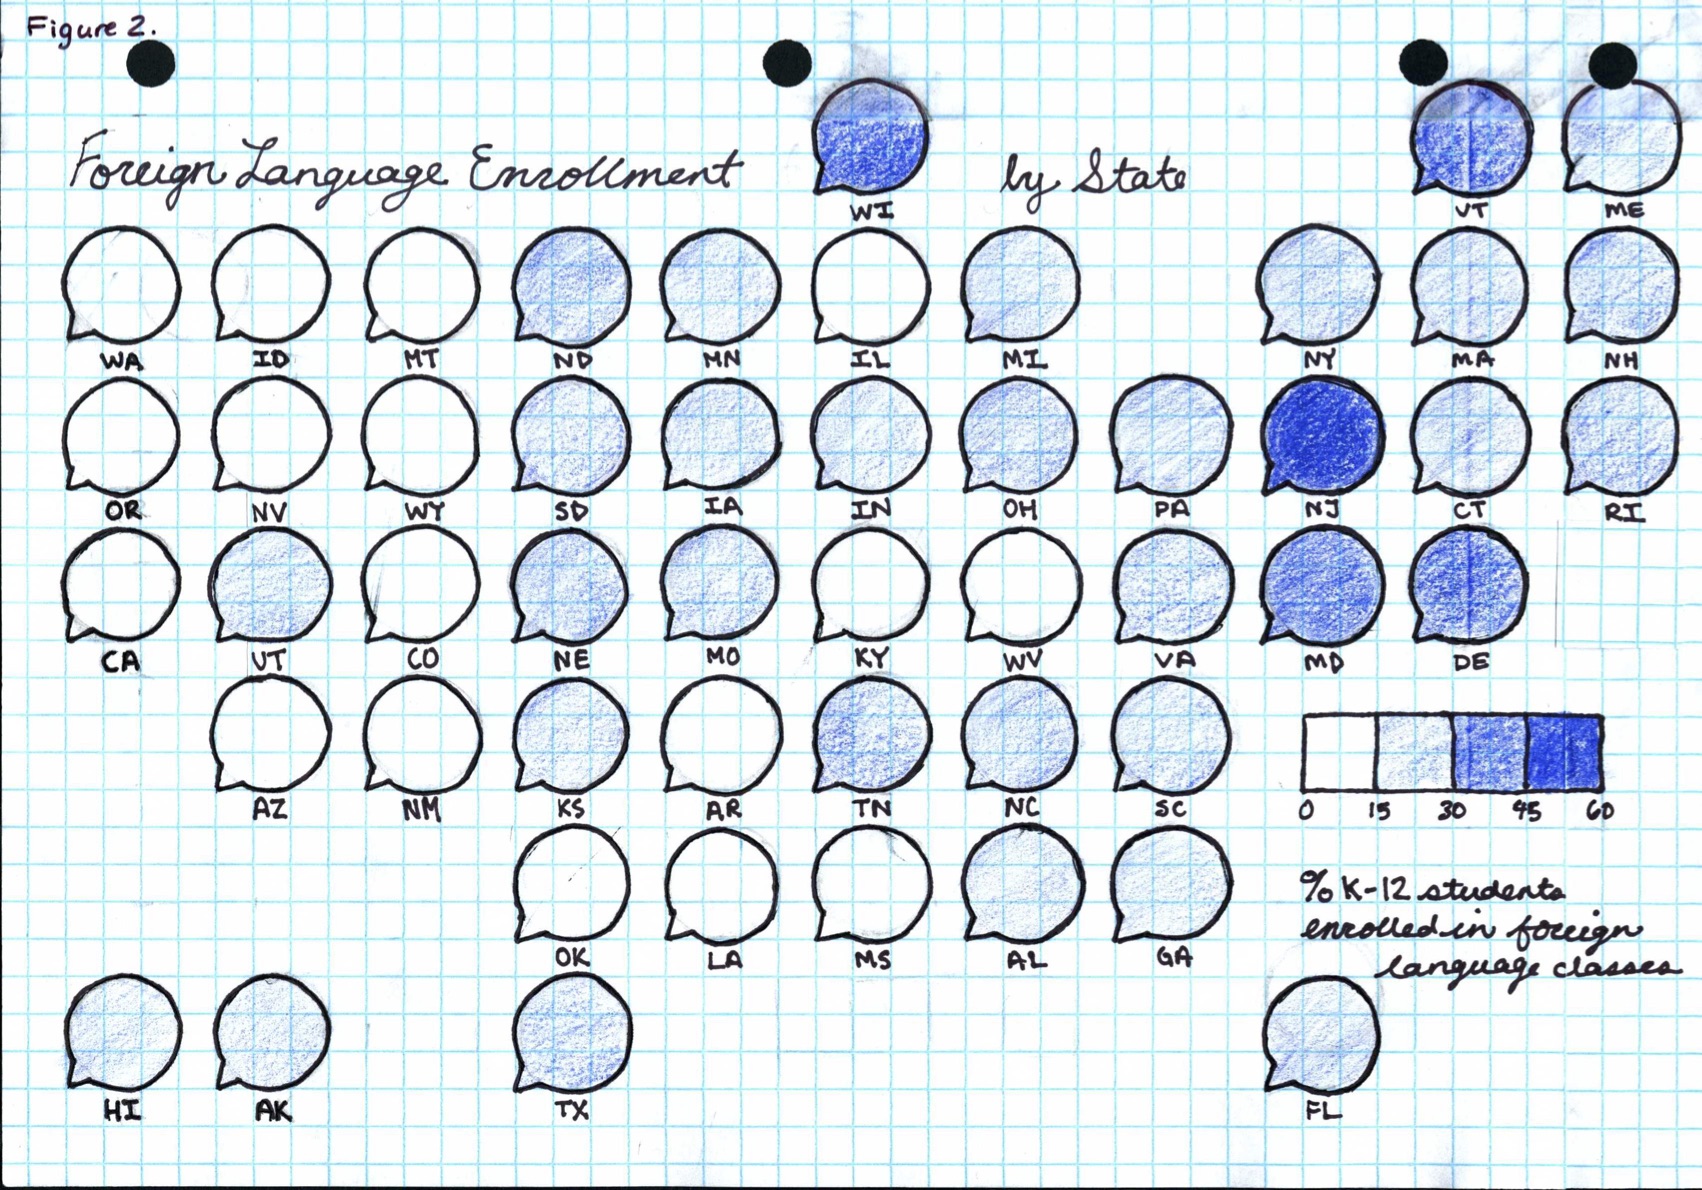 Figure 2.
Foreign Language Enrollment by State
WI VT ME
WA ID MT ND MN IL MI NY MA NH
OR NV WY SD IA IN OH PA NJ CT RI
CA UT CO NE MO KY WV VA MD DE
AZ NM KS AR TN NC SC
0 15 30 45 60
OK LA MS AL GA
% K-12 students
enrolled in foreign
language classes
HI AK TX FL